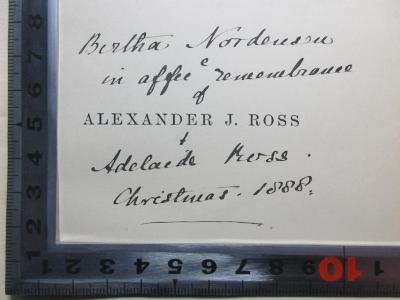 Bertha Nordenson
in affec^e remembrance
of
ALEXANDER J. ROSS
+
Adelaide Ross.
Christmas. 1888.
8 7 6 5 4 3 2
3 2 1 1 2 3 4 5 6 7 8 9 10 11